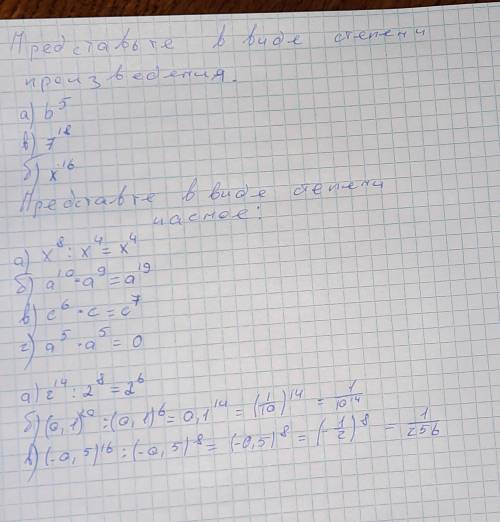 Представьте в виде степени
произведения.
а) b⁵
в) 7¹⁸
б) x¹⁶
Представте в виде степени
частное:
а) x⁸ : x⁴ = x⁴
б) a¹⁰ · a⁹ = a¹⁹
в) c⁶ · c = c⁷
г) a⁵ · a⁵ = 0
а) 2¹⁴ : 2⁸ = 2⁶
б) (0,1)²⁰ : (0,1)⁶ = 0,1¹⁴ = (1/10)¹⁴ = 1/10¹⁴
в) (-0,5)¹⁶ : (-0,5)⁸ = (-0,5)⁸ = (-1/2)⁸ = 1/256